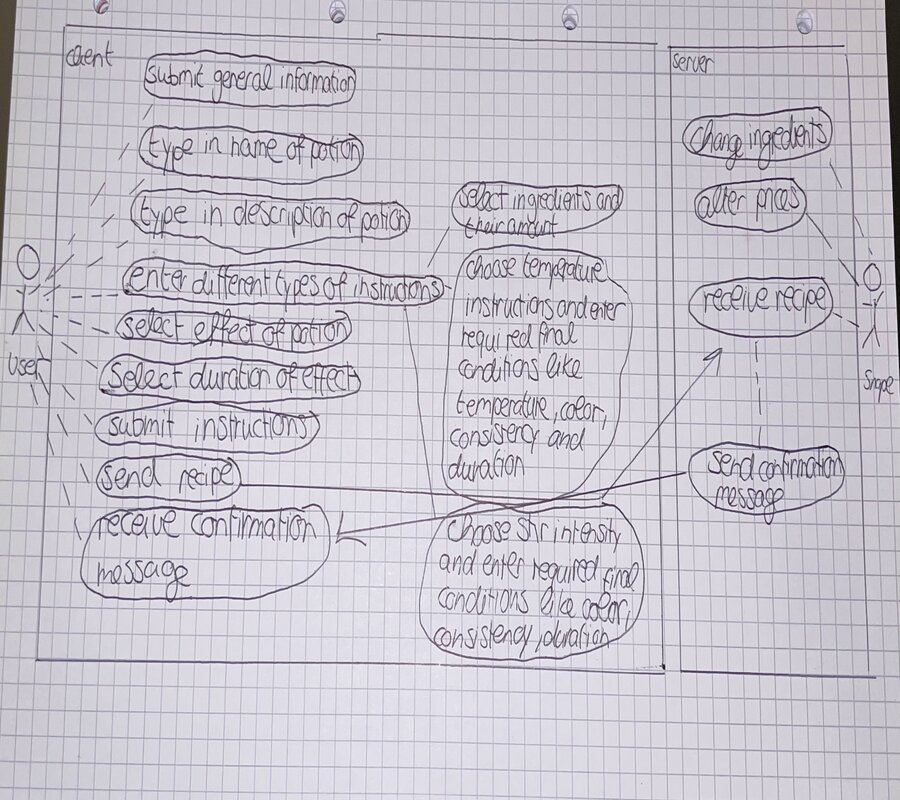 client
submit general information
type in name of potion
type in description of potion
enter different types of instructions
select effect of potion
select duration of effects
submit instructions
send recipe
receive confirmation
message
user
select ingredients and
their amount
choose temperature
instructions and enter
required final
conditions like
temperature, color,
consistency and
duration
choose stir intensity
and enter required final
conditions like color,
consistency, duration
server
change ingredients
alter prices
receive recipe
send confirmation
message
Snape